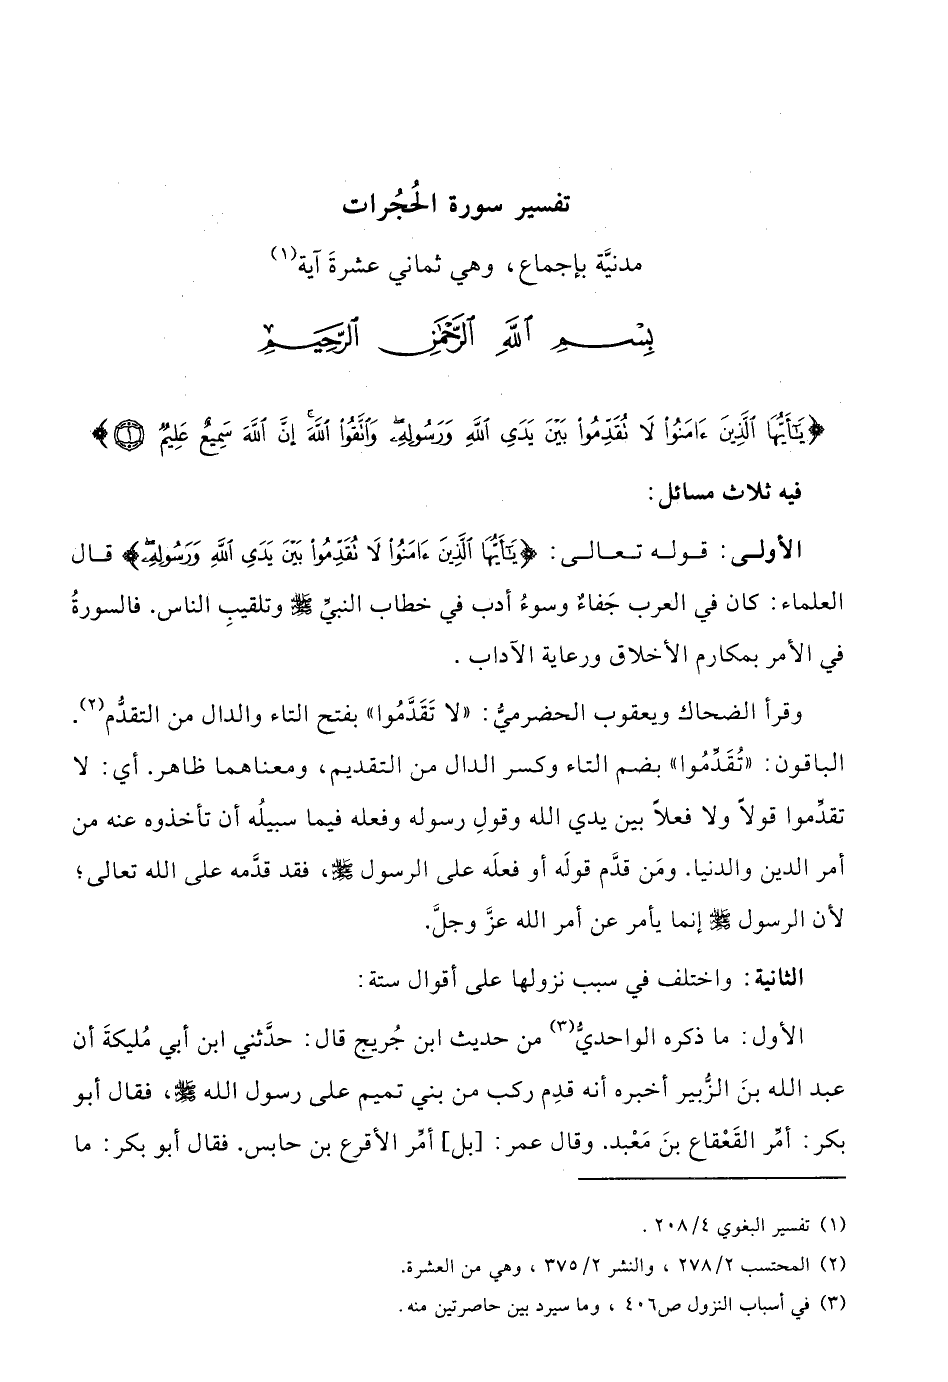 تفسير سورة الحُجُرات
مدنيَّة بإجماع، وهي ثماني عشرةَ آية(١)
بِسْمِ ٱللَّهِ ٱلرَّحْمَٰنِ ٱلرَّحِيمِ
﴿يَٰٓأَيُّهَا ٱلَّذِينَ ءَامَنُوا۟ لَا تُقَدِّمُوا۟ بَيْنَ يَدَىِ ٱللَّهِ وَرَسُولِهِۦۖ وَٱتَّقُوا۟ ٱللَّهَۚ إِنَّ ٱللَّهَ سَمِيعٌ عَلِيمٌ ١﴾
فيه ثلاث مسائل:
الأولى: قوله تعالى: ﴿يَٰٓأَيُّهَا ٱلَّذِينَ ءَامَنُوا۟ لَا تُقَدِّمُوا۟ بَيْنَ يَدَىِ ٱللَّهِ وَرَسُولِهِۦۖ﴾ قال
العلماء: كان في العرب جَفاءٌ وسوءُ أدب في خطاب النبيِّ ﷺ وتلقيبِ الناس. فالسورةُ
في الأمر بمكارم الأخلاق ورعاية الآداب .
وقرأ الضحاك ويعقوب الحضرميُّ: «لا تَقَدَّمُوا» بفتح التاء والدال من التقدُّم(٢).
الباقون: «تُقَدِّمُوا» بضم التاء وكسر الدال من التقديم، ومعناهما ظاهر. أي: لا
تقدِّموا قولاً ولا فعلاً بين يدي الله وقولِ رسوله وفعله فيما سبيلُه أن تأخذوه عنه من
أمر الدين والدنيا. ومَن قدَّم قولَه أو فعلَه على الرسول ﷺ، فقد قدَّمه على الله تعالى؛
لأن الرسول ﷺ إنما يأمر عن أمر الله عزَّ وجلَّ.
الثانية: واختلف في سبب نزولها على أقوال ستة:
الأول: ما ذكره الواحديُّ(٣) من حديث ابن جُريج قال: حدَّثني ابن أبي مُليكةَ أن
عبد الله بنَ الزُّبير أخبره أنه قدِم ركب من بني تميم على رسول الله ﷺ، فقال أبو
بكر: أمِّر القَعْقاع بنَ مَعْبد. وقال عمر: [بل] أمِّر الأقرع بن حابس. فقال أبو بكر: ما
(١) تفسير البغوي ٢٠٨/٤ .
(٢) المحتسب ٢٧٨/٢ ، والنشر ٣٧٥/٢ ، وهي من العشرة.
(٣) في أسباب النزول ص٤٠٦ ، وما سيرد بين حاصرتين منه.